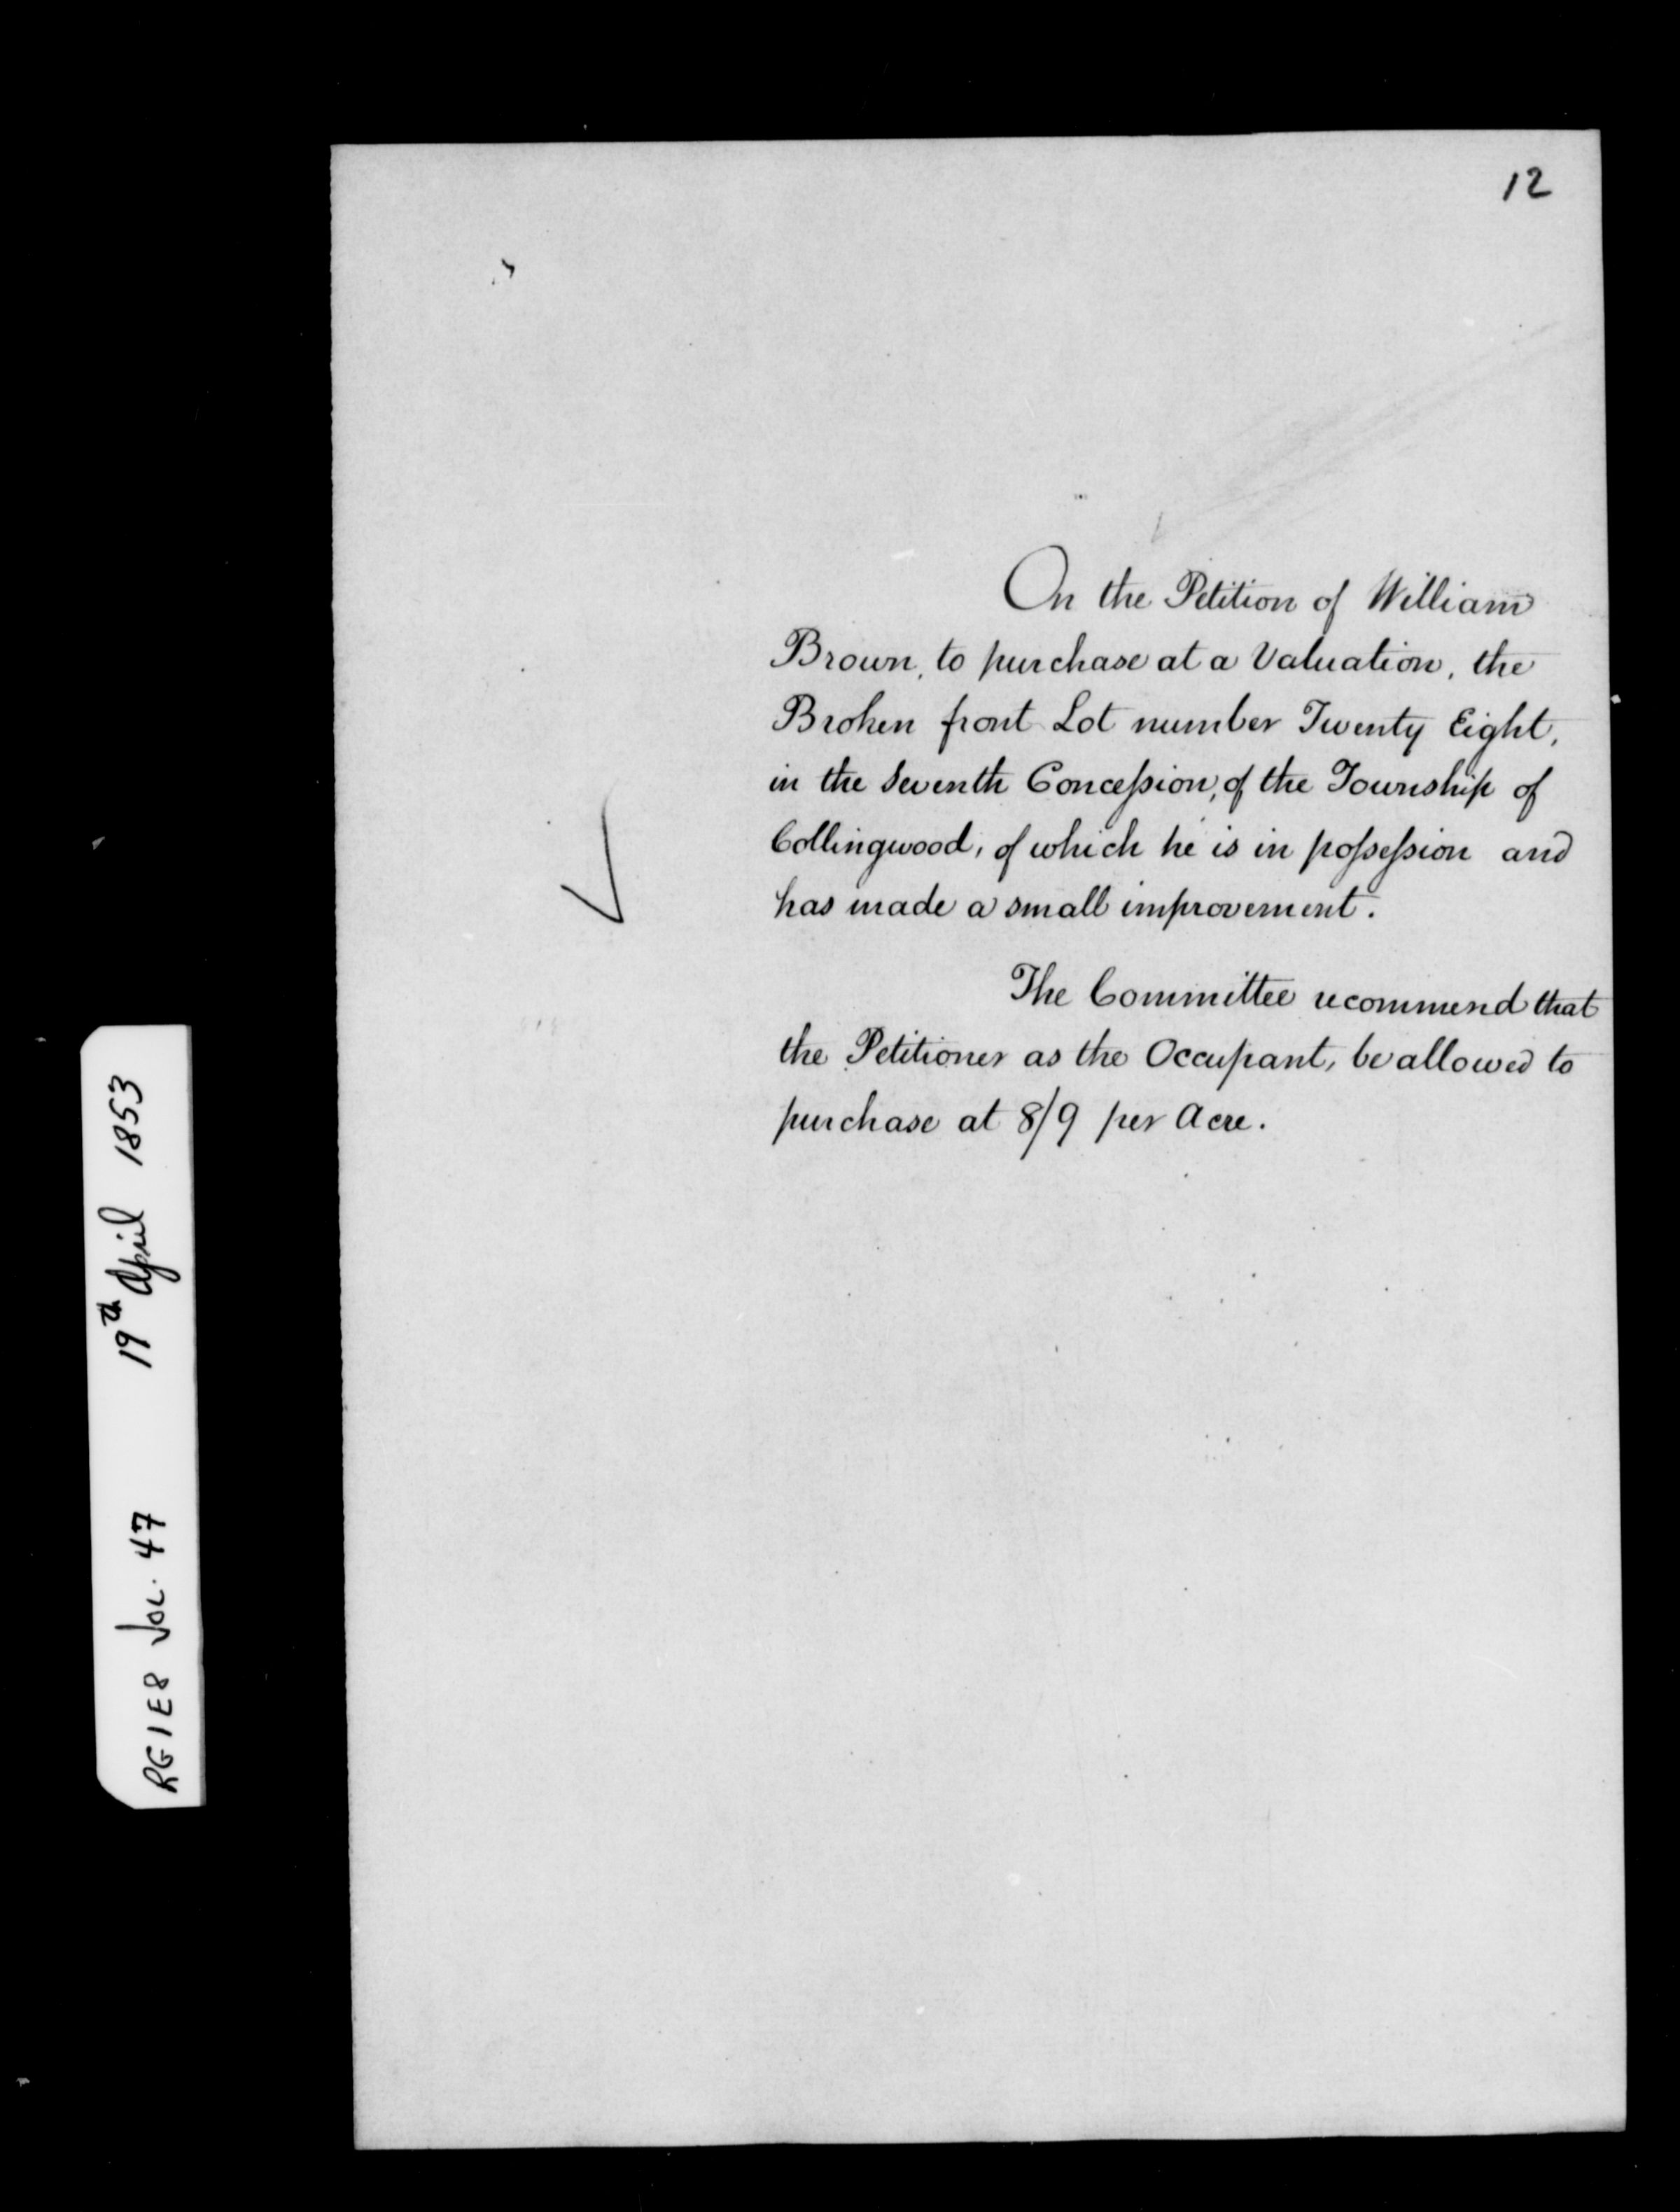 12
On the Petition of William
Brown, to purchase at a Valuation, the
Broken front Lot number Twenty Eight,
in the Seventh Conceſsion, of the Township of
Collingwood, of which he is in poſseſsion and
has made a small improvement.
The Committee recommend that
the Petitioner as the Occupant, be allowed to
purchase at 8/9 per Acre.
RG1E8 VOL. 47 19th April 1853